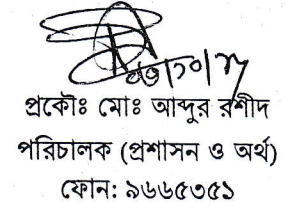 প্রকৌঃ মোঃ আব্দুর রশীদ
পরিচালক (প্রশাসন ও অর্থ)
ফোন: ৯৬৬৫৩৫১